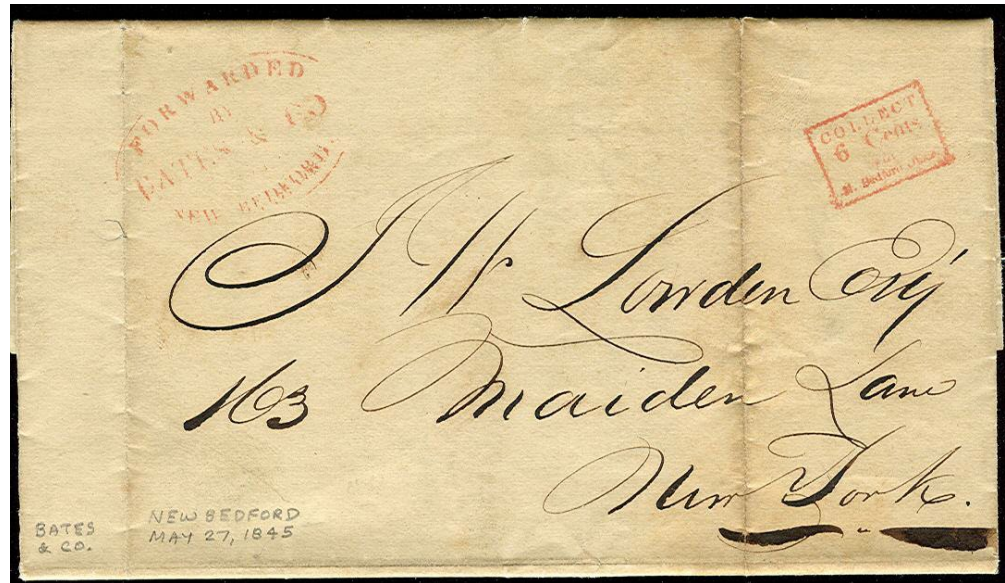 FORWARDED
BY
BATES & CO
NEW BEDFORD
COLLECT
6 Cents
N. Bedford Office
J W Lowden Esq
163 Maiden Lane
New York.
BATES
& CO.
NEW BEDFORD
MAY 27, 1845